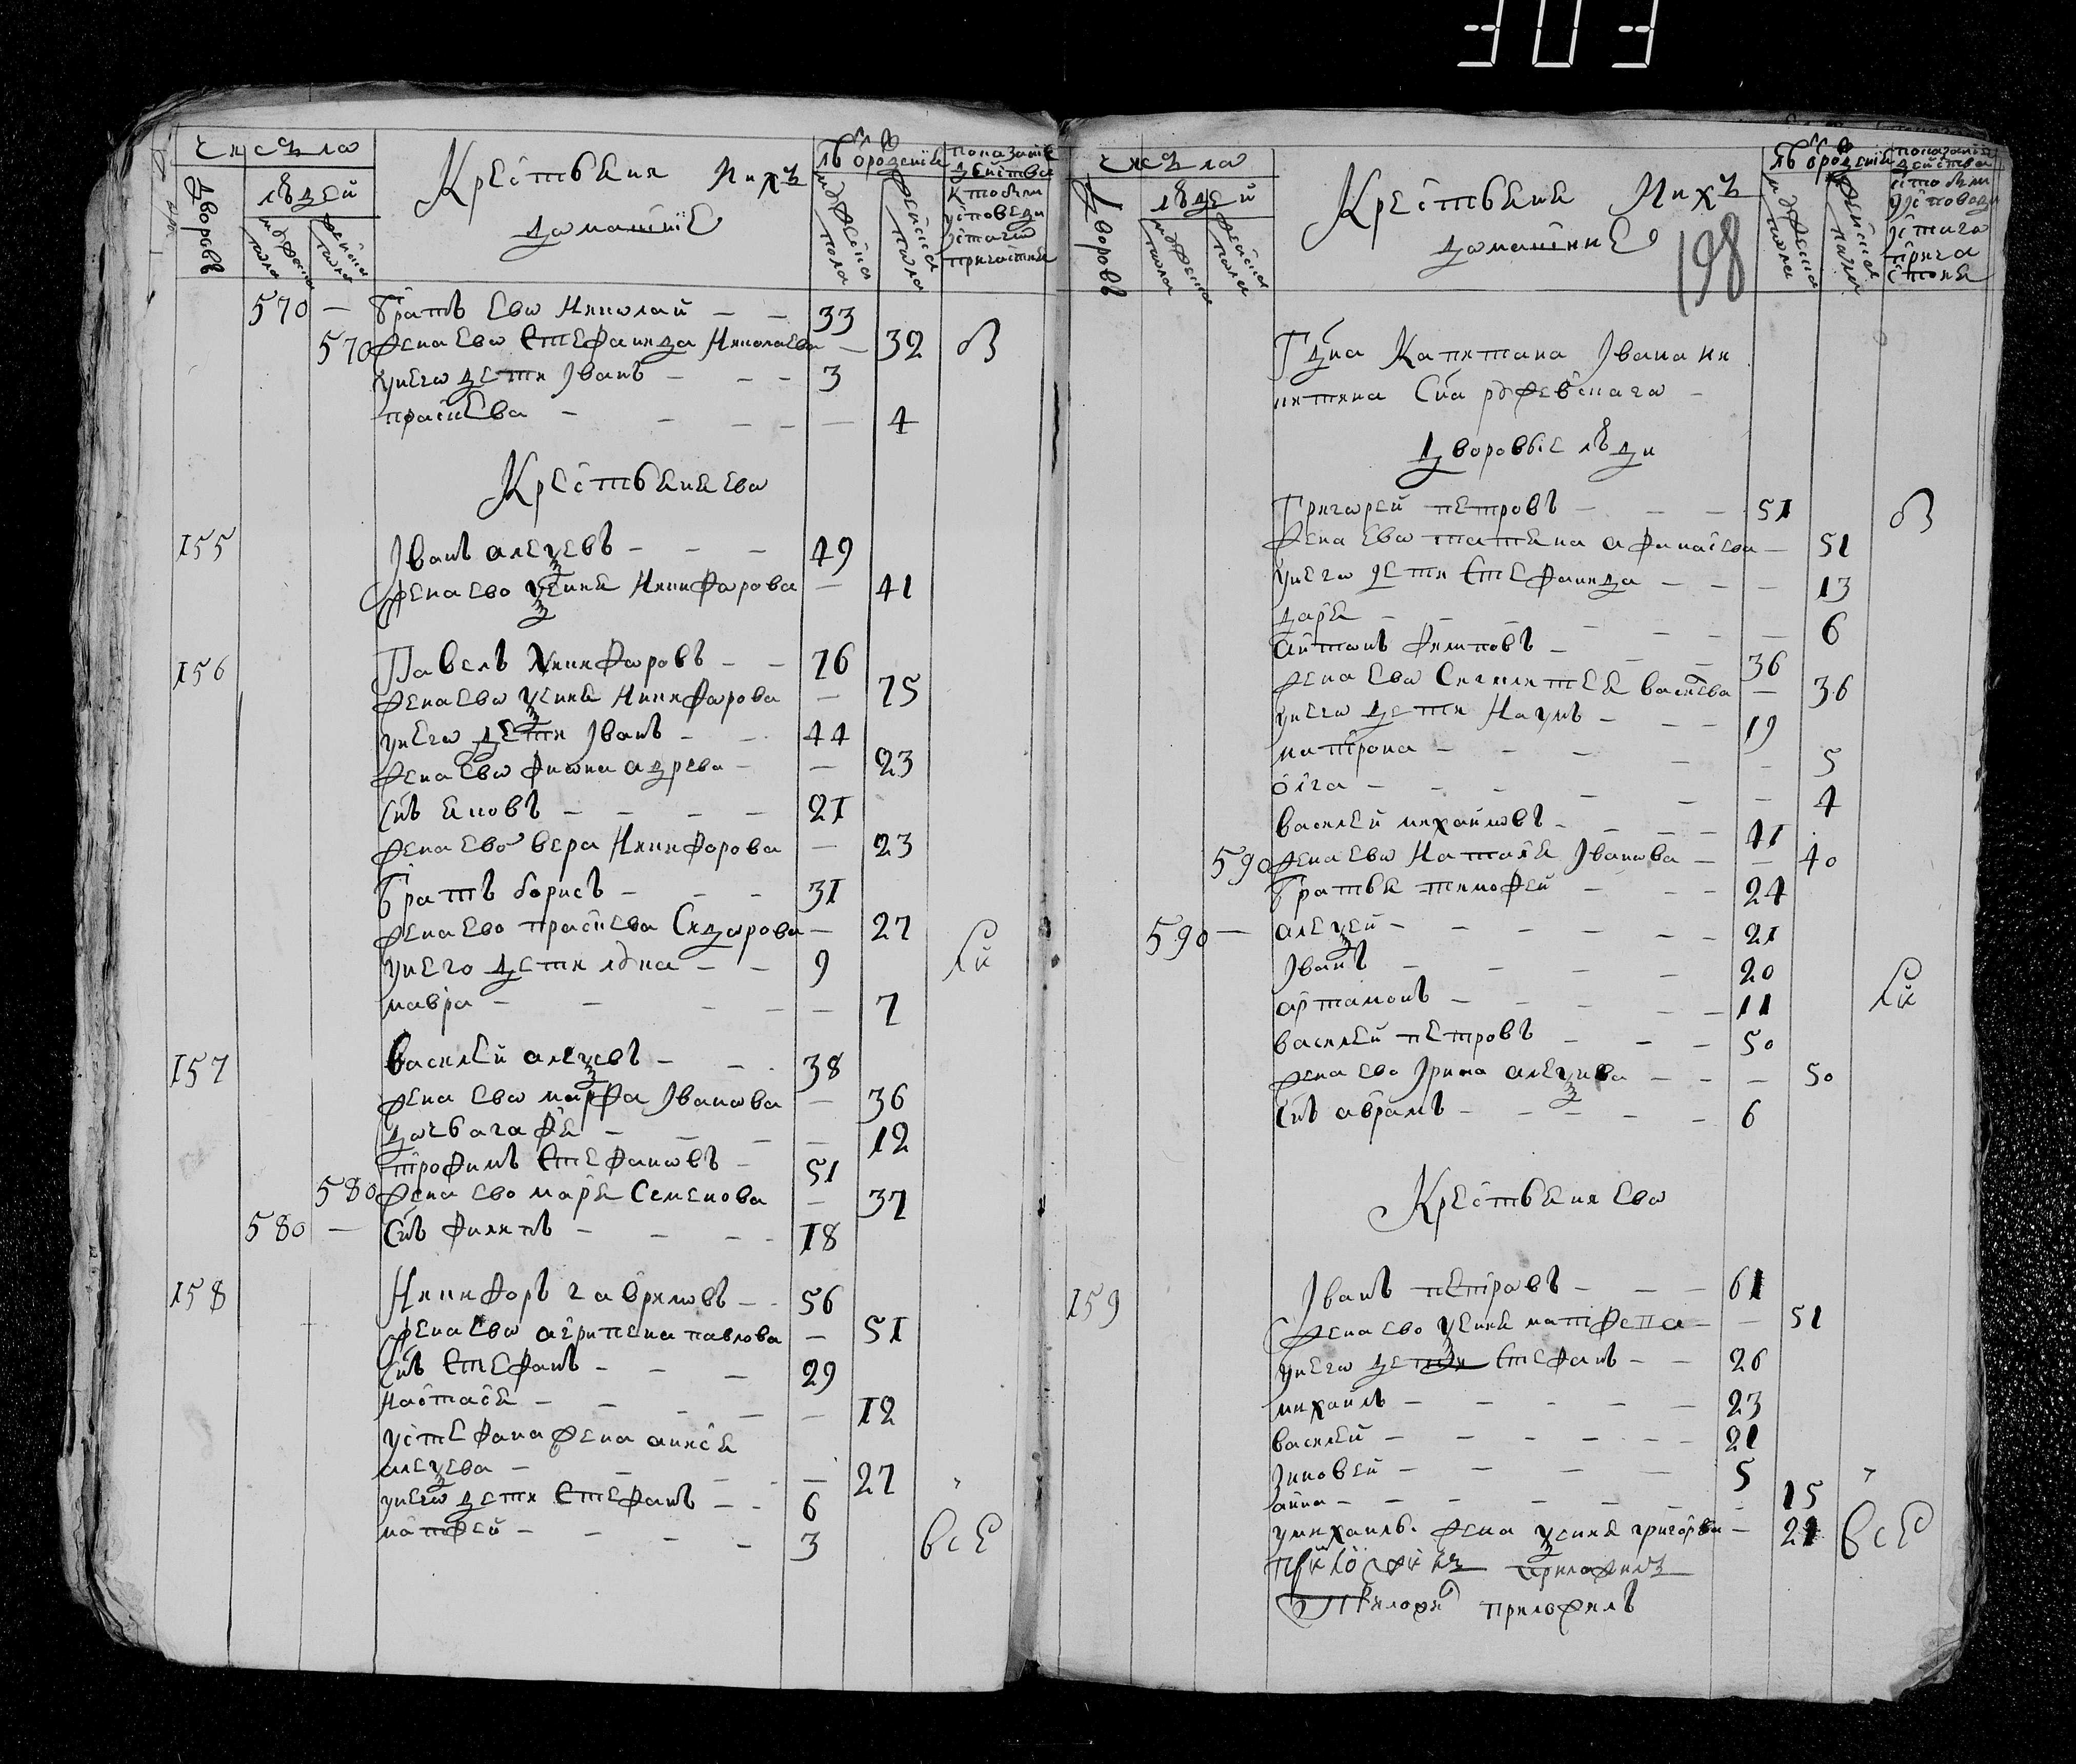 303
число
дворовъ
людей
мужеска пола
женска пола
Крестьяня и ихъ
домашние
лѣ от рождения
мужеска пола
женска пола
показание действа
кто были
у исповеди
и святаго
причастия
570 — братъ ево Николай — — 33
570 жена ево Стефанида Николаева — 32
у него дети Іванъ — — — 3
прасковья — — — — 4
Крестьяня ево
155 Іванъ алеѯевъ — — — 49
жена ево ѯения Никифорова — 41
156 Павелъ Никифоровъ — — 76
жена ево ѯения Никифорова — 75
у него дети Іванъ — — 44
жена ево фиона адрева — — 23
сн̃ъ яковъ — — — — 21
жена ево вера Никифорова — 23
братъ борисъ — — — 31
жена ево прасковья Сидорова — 27
у него дети лука — — 9
мавра — — — — — 7
157 василей алеѯевъ — — 38
жена ево марфа Іванова — 36
дочь агафья — — — — 12
трофимъ Стефановъ — 51
580 жена ево марья Семенова — 37
580 — сн̃ъ филипъ — — — — 18
158 Никифоръ гавриловъ — — 56
жена ево агрипена павлова — 51
сн̃ъ Стефанъ — — — 29
настасья — — — — — 12
у стефана жена анисья
алеѯева — — — — — 27
у него дети Стефанъ — — 6
матфей — — — — 3
все
число
дворовъ
людей
мужеска пола
женска пола
Крестьяня и ихъ
домашние
198
лѣ от рождения
мужеска пола
женска пола
показания действа
кто были
у исповеди
и святаго
прича
стия
Гдна Капитана Івана Ни
китина Сна
дворовые люди
Григорей петровъ — — — 51
жена ево татьяна афанасева — 51
у него дети Стефанида — — — 13
дарья — — — — — — 6
антонъ филиповъ — — 36
жена ево Секлитея васильева — 36
у него дети Наумъ — — — 19
матрона — — — — — 5
олга — — — — — — 4
василей михайловъ — — — — 41
590 жена ево Наталья Іванова — — 40
братья тимофей — — — 24
590 — алеѯей — — — — — — 21
Іванъ — — — — 20
артамонъ — — — — — 11
василей петровъ — — — 50
жена ево Ірина алеѯеива — — — 50
сн̃ъ аврамъ — — — — — 6
Крестьяня ево
159 Іванъ петровъ — — — 61
жена ево ѯения матфева — — 51
у него дети Стефанъ — — 26
михаилъ — — — — — 23
василей — — — — — — 21
зиновей — — — — 5
анна — — — — — — — 15
у михаилы жена ѯения григорьва — 21
все
приложилъ
приложилъ